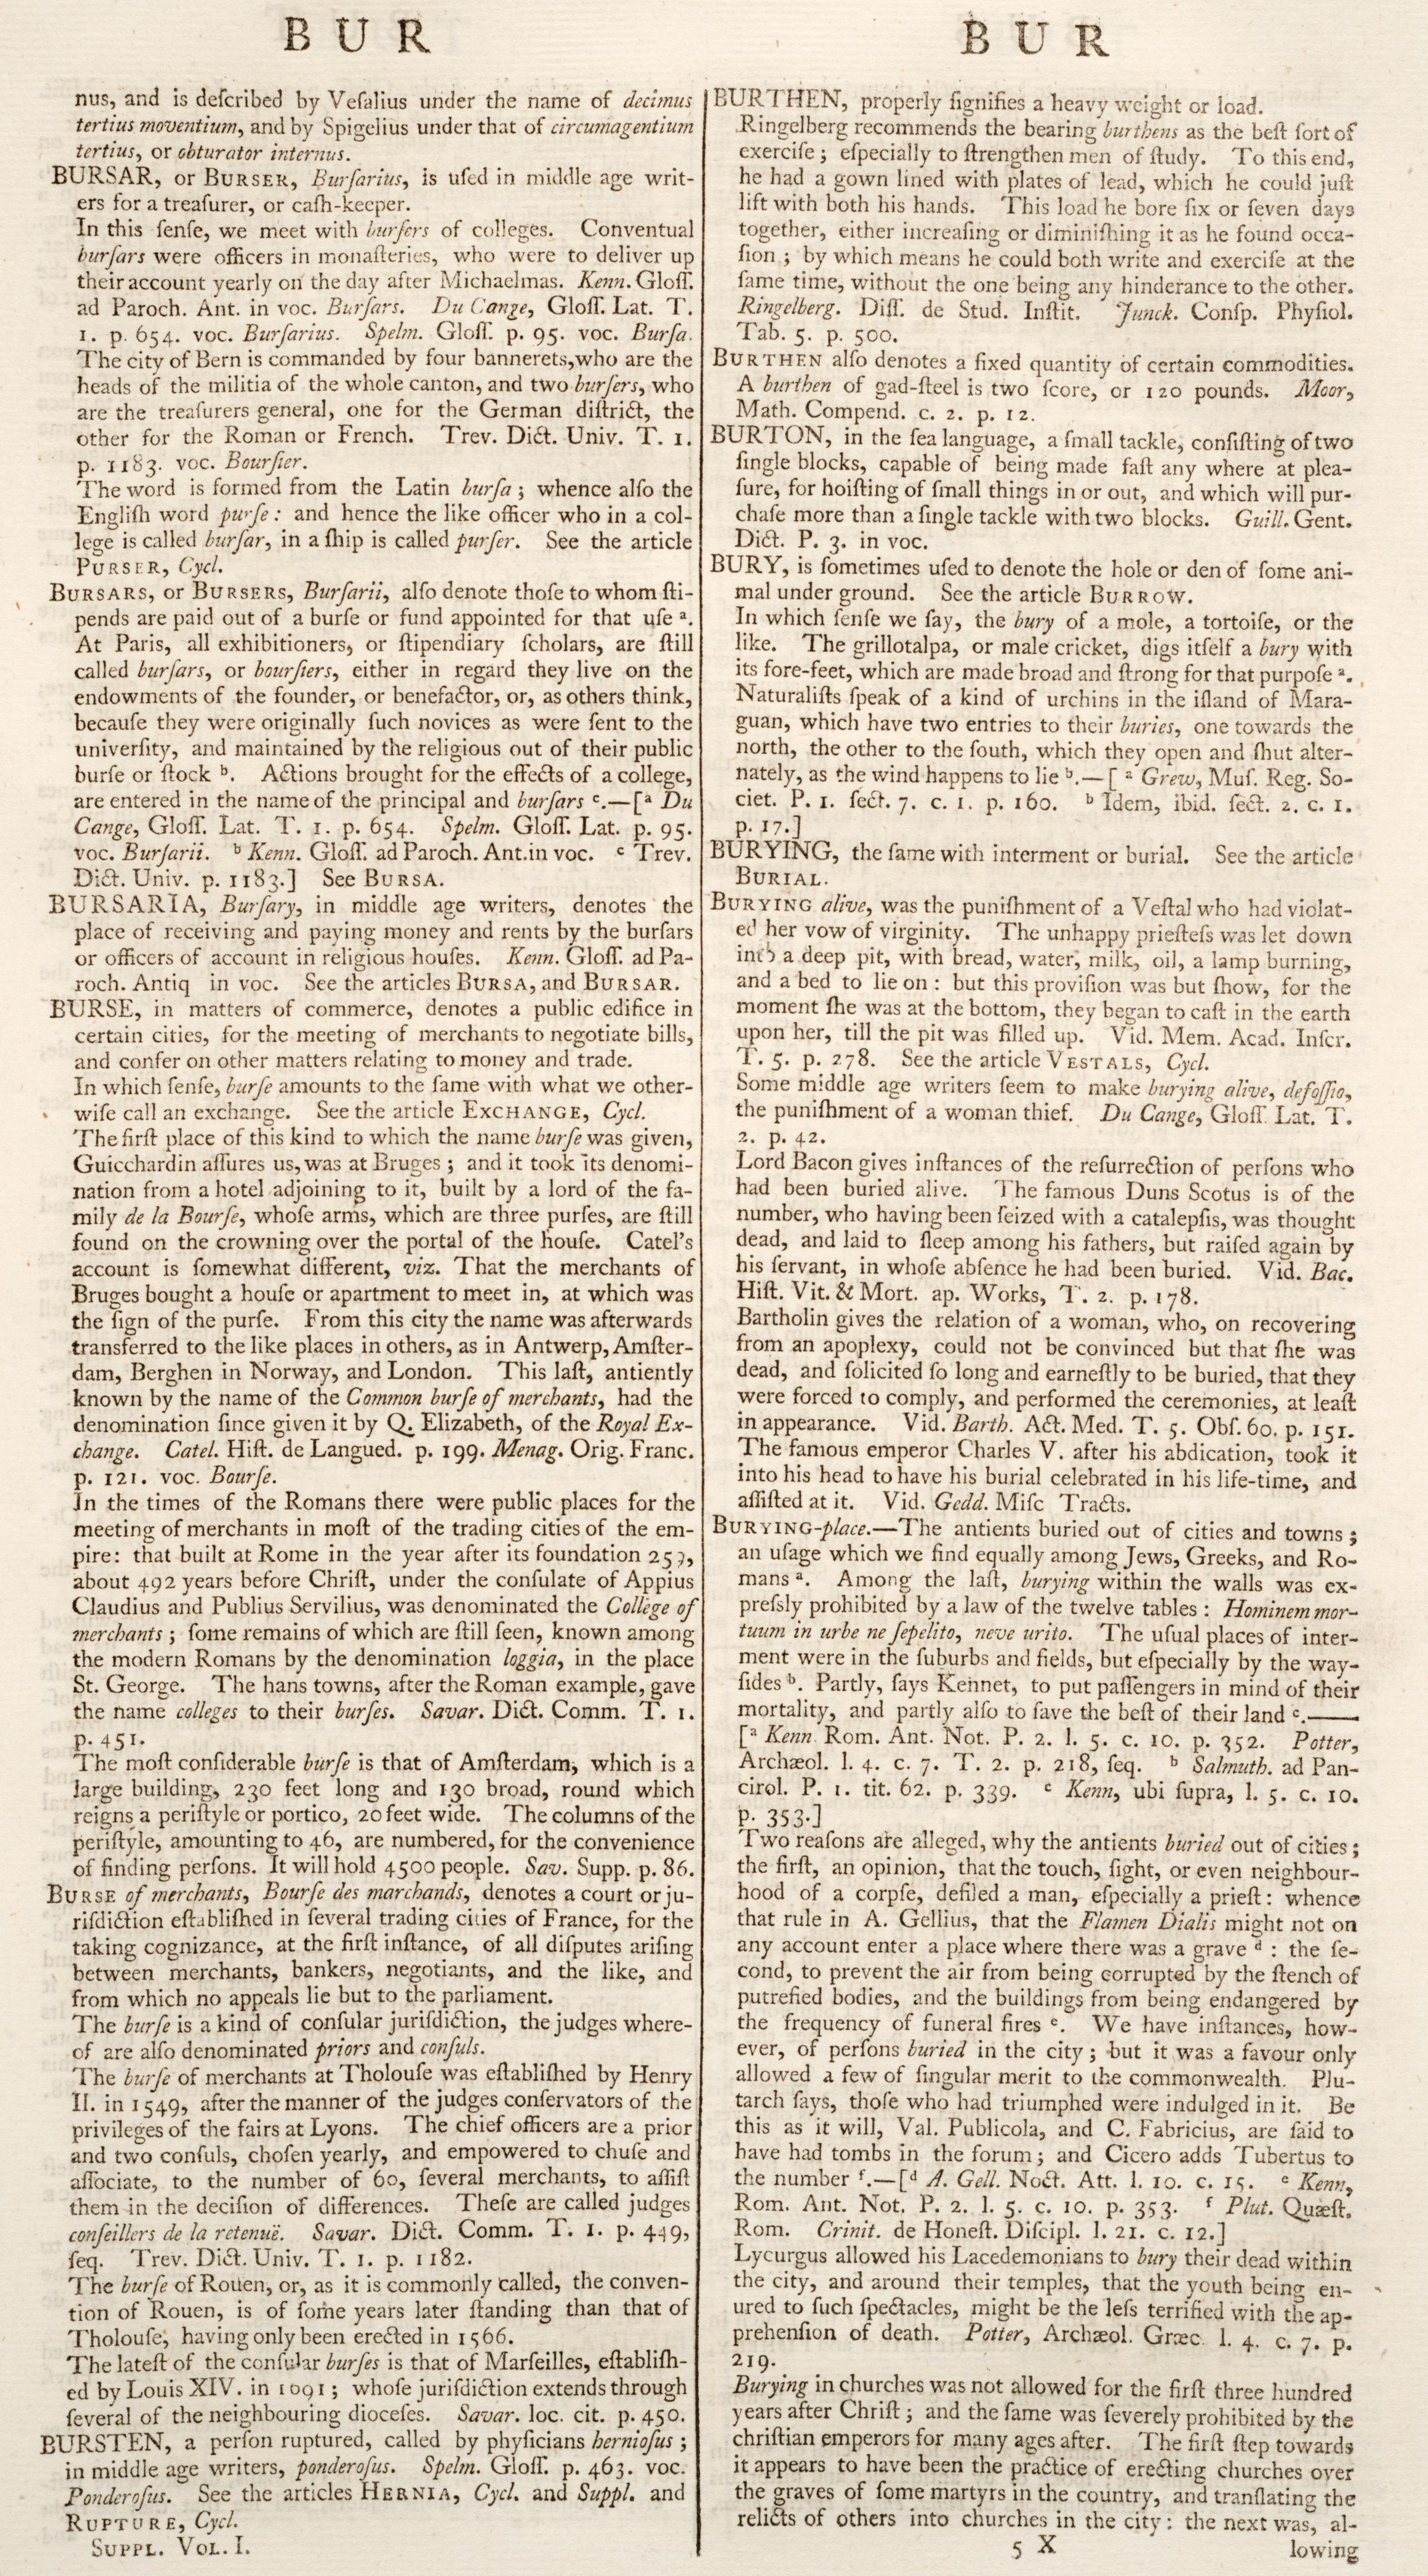 B U R
nus, and is deſcribed by Veſalius under the name of decimus
tertius moventium, and by Spigelius under that of circumagentium
tertius, or obturator internus.
BURSAR, or BURSER, Burſarius, is uſed in middle age writ-
ers for a treaſurer, or caſh-keeper.
In this ſenſe, we meet with burſers of colleges. Conventual
burſars were officers in monaſteries, who were to deliver up
their account yearly on the day after Michaelmas. Kenn. Gloſſ.
ad Paroch. Ant. in voc. Burſars. Du Cange, Gloſſ. Lat. T.
1. p. 654. voc. Burſarius. Spelm. Gloſſ. p. 95. voc. Burſa.
The city of Bern is commanded by four bannerets, who are the
heads of the militia of the whole canton, and two burſers, who
are the treaſurers general, one for the German diſtrict, the
other for the Roman or French. Trev. Dict. Univ. T. 1.
p. 1183. voc. Bourſier.
The word is formed from the Latin burſa; whence alſo the
Engliſh word purſe: and hence the like officer who in a col-
lege is called burſar, in a ſhip is called purſer. See the article
PURSER, Cycl.
BURSARS, or BURSERS, Burſarii, alſo denote thoſe to whom ſti-
pends are paid out of a burſe or fund appointed for that uſe ª.
At Paris, all exhibitioners, or ſtipendiary ſcholars, are ſtill
called burſars, or bourſiers, either in regard they live on the
endowments of the founder, or benefactor, or, as others think,
becauſe they were originally ſuch novices as were ſent to the
univerſity, and maintained by the religious out of their public
burſe or ſtock ᵇ. Actions brought for the effects of a college,
are entered in the name of the principal and burſars ᶜ.—[ª Du
Cange, Gloſſ. Lat. T. 1. p. 654. Spelm. Gloſſ. Lat. p. 95.
voc. Burſarii. ᵇ Kenn. Gloſſ. ad Paroch. Ant. in voc. ᶜ Trev.
Dict. Univ. p. 1183.] See BURSA.
BURSARIA, Burſary, in middle age writers, denotes the
place of receiving and paying money and rents by the burſars
or officers of account in religious houſes. Kenn. Gloſſ. ad Pa-
roch. Antiq in voc. See the articles BURSA, and BURSAR.
BURSE, in matters of commerce, denotes a public edifice in
certain cities, for the meeting of merchants to negotiate bills,
and confer on other matters relating to money and trade.
In which ſenſe, burſe amounts to the ſame with what we other-
wiſe call an exchange. See the article EXCHANGE, Cycl.
The firſt place of this kind to which the name burſe was given,
Guicchardin aſſures us, was at Bruges; and it took its denomi-
nation from a hotel adjoining to it, built by a lord of the fa-
mily de la Bourſe, whoſe arms, which are three purſes, are ſtill
found on the crowning over the portal of the houſe. Catel's
account is ſomewhat different, viz. That the merchants of
Bruges bought a houſe or apartment to meet in, at which was
the ſign of the purſe. From this city the name was afterwards
transferred to the like places in others, as in Antwerp, Amſter-
dam, Berghen in Norway, and London. This laſt, antiently
known by the name of the Common burſe of merchants, had the
denomination ſince given it by Q. Elizabeth, of the Royal Ex-
change. Catel. Hiſt. de Langued. p. 199. Menag. Orig. Franc.
p. 121. voc. Bourſe.
In the times of the Romans there were public places for the
meeting of merchants in moſt of the trading cities of the em-
pire: that built at Rome in the year after its foundation 259,
about 492 years before Chriſt, under the conſulate of Appius
Claudius and Publius Servilius, was denominated the College of
merchants; ſome remains of which are ſtill ſeen, known among
the modern Romans by the denomination loggia, in the place
St. George. The hans towns, after the Roman example, gave
the name colleges to their burſes. Savar. Dict. Comm. T. 1.
p. 451.
The moſt conſiderable burſe is that of Amſterdam, which is a
large building, 230 feet long and 130 broad, round which
reigns a periſtyle or portico, 20 feet wide. The columns of the
periſtyle, amounting to 46, are numbered, for the convenience
of finding perſons. It will hold 4500 people. Sav. Supp. p. 86.
BURSE of merchants, Bourſe des marchands, denotes a court or ju-
riſdiction eſtabliſhed in ſeveral trading cities of France, for the
taking cognizance, at the firſt inſtance, of all diſputes ariſing
between merchants, bankers, negotiants, and the like, and
from which no appeals lie but to the parliament.
The burſe is a kind of conſular juriſdiction, the judges where-
of are alſo denominated priors and conſuls.
The burſe of merchants at Tholouſe was eſtabliſhed by Henry
II. in 1549, after the manner of the judges conſervators of the
privileges of the fairs at Lyons. The chief officers are a prior
and two conſuls, choſen yearly, and empowered to chuſe and
aſſociate, to the number of 60, ſeveral merchants, to aſſiſt
them in the deciſion of differences. Theſe are called judges
conſeillers de la retenuë. Savar. Dict. Comm. T. 1. p. 449,
ſeq. Trev. Dict. Univ. T. 1. p. 1182.
The burſe of Roüen, or, as it is commonly called, the conven-
tion of Rouen, is of ſome years later ſtanding than that of
Tholouſe, having only been erected in 1566.
The lateſt of the conſular burſes is that of Marſeilles, eſtabliſh-
ed by Louis XIV. in 1691; whoſe juriſdiction extends through
ſeveral of the neighbouring dioceſes. Savar. loc. cit. p. 450.
BURSTEN, a perſon ruptured, called by phyſicians hernioſus;
in middle age writers, ponderoſus. Spelm. Gloſſ. p. 463. voc.
Ponderoſus. See the articles HERNIA, Cycl. and Suppl. and
RUPTURE, Cycl.
SUPPL. VOL. I.
B U R
BURTHEN, properly ſignifies a heavy weight or load.
Ringelberg recommends the bearing burthens as the beſt ſort of
exerciſe; eſpecially to ſtrengthen men of ſtudy. To this end,
he had a gown lined with plates of lead, which he could juſt
lift with both his hands. This load he bore ſix or ſeven days
together, either increaſing or diminiſhing it as he found occa-
ſion; by which means he could both write and exerciſe at the
ſame time, without the one being any hinderance to the other.
Ringelberg. Diſſ. de Stud. Inſtit. Junck. Conſp. Phyſiol.
Tab. 5. p. 500.
BURTHEN alſo denotes a fixed quantity of certain commodities.
A burthen of gad-ſteel is two ſcore, or 120 pounds. Moor,
Math. Compend. c. 2. p. 12.
BURTON, in the ſea language, a ſmall tackle, conſiſting of two
ſingle blocks, capable of being made faſt any where at plea-
ſure, for hoiſting of ſmall things in or out, and which will pur-
chaſe more than a ſingle tackle with two blocks. Guill. Gent.
Dict. P. 3. in voc.
BURY, is ſometimes uſed to denote the hole or den of ſome ani-
mal under ground. See the article BURROW.
In which ſenſe we ſay, the bury of a mole, a tortoiſe, or the
like. The grillotalpa, or male cricket, digs itſelf a bury with
its fore-feet, which are made broad and ſtrong for that purpoſe ª.
Naturaliſts ſpeak of a kind of urchins in the iſland of Mara-
guan, which have two entries to their buries, one towards the
north, the other to the ſouth, which they open and ſhut alter-
nately, as the wind happens to lie ᵇ.—[ ª Grew, Muſ. Reg. So-
ciet. P. 1. ſect. 7. c. 1. p. 160. ᵇ Idem, ibid. ſect. 2. c. 1.
p. 17.]
BURYING, the ſame with interment or burial. See the article
BURIAL.
BURYING alive, was the puniſhment of a Veſtal who had violat-
ed her vow of virginity. The unhappy prieſteſs was let down
into a deep pit, with bread, water, milk, oil, a lamp burning,
and a bed to lie on: but this proviſion was but ſhow, for the
moment ſhe was at the bottom, they began to caſt in the earth
upon her, till the pit was filled up. Vid. Mem. Acad. Inſcr.
T. 5. p. 278. See the article VESTALS, Cycl.
Some middle age writers ſeem to make burying alive, defoſſio,
the puniſhment of a woman thief. Du Cange, Gloſſ. Lat. T.
2. p. 42.
Lord Bacon gives inſtances of the reſurrection of perſons who
had been buried alive. The famous Duns Scotus is of the
number, who having been ſeized with a catalepſis, was thought
dead, and laid to ſleep among his fathers, but raiſed again by
his ſervant, in whoſe abſence he had been buried. Vid. Bac.
Hiſt. Vit. & Mort. ap. Works, T. 2. p. 178.
Bartholin gives the relation of a woman, who, on recovering
from an apoplexy, could not be convinced but that ſhe was
dead, and ſolicited ſo long and earneſtly to be buried, that they
were forced to comply, and performed the ceremonies, at leaſt
in appearance. Vid. Barth. Act. Med. T. 5. Obſ. 60. p. 151.
The famous emperor Charles V. after his abdication, took it
into his head to have his burial celebrated in his life-time, and
aſſiſted at it. Vid. Gedd. Miſc Tracts.
BURYING-place.—The antients buried out of cities and towns;
an uſage which we find equally among Jews, Greeks, and Ro-
mans ª. Among the laſt, burying within the walls was ex-
preſsly prohibited by a law of the twelve tables: Hominem mor-
tuum in urbe ne ſepelito, neve urito. The uſual places of inter-
ment were in the ſuburbs and fields, but eſpecially by the way-
ſides ᵇ. Partly, ſays Kennet, to put paſſengers in mind of their
mortality, and partly alſo to ſave the beſt of their land ᶜ.——
[ª Kenn Rom. Ant. Not. P. 2. l. 5. c. 10. p. 352. Potter,
Archæol. l. 4. c. 7. T. 2. p. 218, ſeq. ᵇ Salmuth. ad Pan-
cirol. P. 1. tit. 62. p. 339. ᶜ Kenn, ubi ſupra, l. 5. c. 10.
p. 353.]
Two reaſons are alleged, why the antients buried out of cities;
the firſt, an opinion, that the touch, ſight, or even neighbour-
hood of a corpſe, defiled a man, eſpecially a prieſt: whence
that rule in A. Gellius, that the Flamen Dialis might not on
any account enter a place where there was a grave ᵈ: the ſe-
cond, to prevent the air from being corrupted by the ſtench of
putrefied bodies, and the buildings from being endangered by
the frequency of funeral fires ᵉ. We have inſtances, how-
ever, of perſons buried in the city; but it was a favour only
allowed a few of ſingular merit to the commonwealth. Plu-
tarch ſays, thoſe who had triumphed were indulged in it. Be
this as it will, Val. Publicola, and C. Fabricius, are ſaid to
have had tombs in the forum; and Cicero adds Tubertus to
the number ᶠ.—[ᵈ A. Gell. Noct. Att. l. 10. c. 15. ᵉ Kenn,
Rom. Ant. Not. P. 2. l. 5. c. 10. p. 353. ᶠ Plut. Quæſt.
Rom. Crinit. de Honeſt. Diſcipl. l. 21. c. 12.]
Lycurgus allowed his Lacedemonians to bury their dead within
the city, and around their temples, that the youth being en-
ured to ſuch ſpectacles, might be the leſs terrified with the ap-
prehenſion of death. Potter, Archæol. Græc. l. 4. c. 7. p.
219.
Burying in churches was not allowed for the firſt three hundred
years after Chriſt; and the ſame was ſeverely prohibited by the
chriſtian emperors for many ages after. The firſt ſtep towards
it appears to have been the practice of erecting churches over
the graves of ſome martyrs in the country, and tranſlating the
relicts of others into churches in the city: the next was, al-
5 X lowing